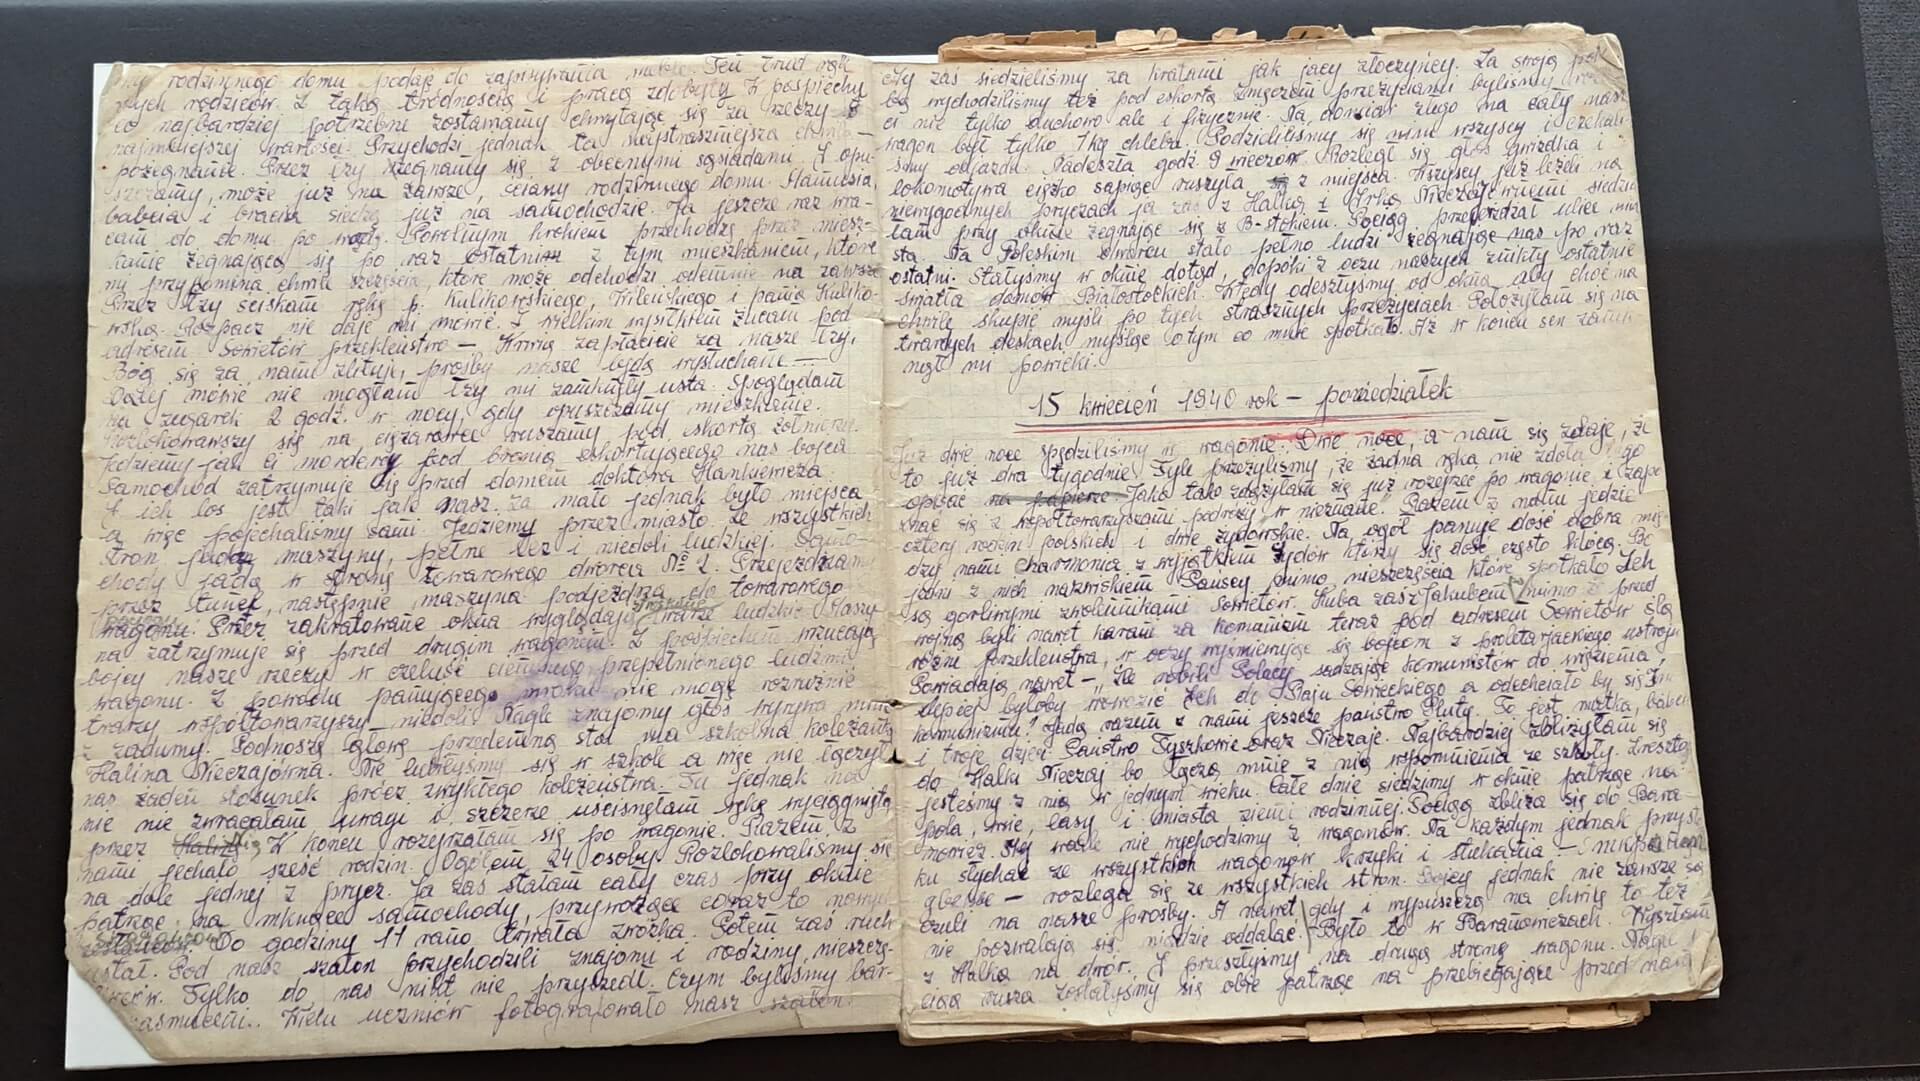 rodzinnego domu podaję do zapisywania meble. Ten trud
rodziców. Z taką trudnością i pracą zdobyty. W pośpiechu
co najbardziej potrzebne zostawiamy chwytając się za rzeczy
najmniejszej wartości. Przychodzi jednak ta najstraszniejsza chwila
pożegnanie. Przez łzy żegnamy się z obecnymi sąsiadami. I opu-
szczamy, może już na zawsze, ściany rodzinnego domu. Mamusia,
babcia i bracia siedzą już na samochodzie. Ja jeszcze raz wra-
cam do domu po Powolnym krokiem przechodzę przez miesz-
kanie żegnając się po raz ostatni z tym mieszkaniem, które
mi przypomina chwile szczęścia, które może odchodzi odemnie na zawsze
Przez łzy ściskam rękę p. Kulikowskiego, Wileńskiego i panią Kuliko-
wską. Rozpacz nie daje mi mówić. Z wielkim wysiłkiem rzucam pod
adresem Sowietów przekleństwo — Krwią zapłacicie za nasze łzy,
Bóg się za nami zlituje, prośby nasze będą wysłuchane —
Dalej mówić nie mogłam łzy mi zamknęły usta. Spoglądam
na zegarek 2 godz. w nocy, gdy opuszczamy mieszkanie.
Rozlokowawszy się na ciężarówce ruszamy pod eskortą żołnierzy.
Jedziemy jak ci mordercy pod bronią eskortującego nas bojca
Samochód zatrzymuje się przed domem doktora Hankiewicza
I ich los jest taki jak nasz. Za mało jednak było miejsca
a więc pojechaliśmy sami. Jedziemy przez miasto. Ze wszystkich
stron jadą maszyny, pełne łez i niedoli ludzkiej. Samo-
chody jadą w stronę towarowego dworca № 2. Przejeżdżamy
przez tunel, następnie maszyna podjeżdża do towarowego
wagonu. Przez zakratowane okna wyglądają twarze ludzkie. Maszy-
na zatrzymuje się przed drugim wagonem. Z pośpiechem wrzucają
bojcy nasze rzeczy w czeluść ciemnego przepełnionego ludźmi
wagonu. Z powodu panującego mroku nie mogę rozróżnić
twarzy współtowarzyszy niedoli. Nagle znajomy głos wyrywa mnie
z zadumy. Podnoszę głowę przedemną stoi ma szkolna koleżanka
Halina Nieczajówna. Nie lubiłyśmy się w szkole a więc nie łączył
nas żaden stosunek prócz zwykłego koleżeństwa. Tu jednak na
nic nie zwracałam uwagi i szczerze uścisnęłam rękę wyciągniętą
przez W końcu rozejrzałam się po wagonie. Razem z
nami jechało sześć rodzin. Ogółem 24 osoby. Rozlokowaliśmy się
na dole jednej z prycz. Ja zaś stałam cały czas przy oknie
patrząc na mknące samochody, przywożące coraz to nowych
Do godziny 11 rano trwała zwózka. Potem zaś ruch
ustał. Pod nasz szalon przychodzili znajomi i rodziny nieszczę-
Tylko do nas nikt nie przyszedł. Czym byliśmy bar-
zasmuceni. Wielu uczniów fotografowało nasz szalon.
My zaś siedzieliśmy za kratami jak jacy złoczyńcy. Za swoją
wychodziliśmy też pod eskortą. Zmęczeni przeżyciami byliśmy
nie tylko duchowo ale i fizycznie. Na domiar złego na cały nasz
wagon był tylko 1 kg chleba. Podzieliliśmy się nim wszyscy i czekali-
śmy odjazdu. Nadeszła godz. 9 wieczór. Rozległ się głos gwizdka i
lokomotywa ciężko sapiąc ruszyła z miejsca. Wszyscy już leżeli na
niewygodnych pryczach ja zaś z Halką i Irką Nieczajewniemi siedzia-
łam przy oknie żegnając się z B-stokiem. Pociąg przejeżdżał ulice mia-
sta. Na Poleskim dworcu stało pełno ludzi żegnając nas po raz
ostatni. Stałyśmy w oknie dotąd, dopóki z oczu naszych znikły ostatnie
światła domów Białostockich. Wtedy odeszłyśmy od okna, aby choć na
chwilę skupić myśli po tych strasznych przeżyciach. Położyłam się na
twardych deskach myśląc o tym co mnie spotkało. Aż w końcu sen zamk-
nął mi powieki.
15 kwiecień 1940 rok – poniedziałek
Już dwie noce spędziliśmy w wagonie. Dwie noce, a nam się zdaje, że
to już dwa tygodnie. Tyle przeżyliśmy, że żadna ręka nie zdoła tego
opisać na papierze. Jako tako zdążyłam się już rozejrzeć po wagonie i zapo-
znać się z współtowarzyszami podróży w nieznane. Razem z nami jedzie
cztery rodzin polskich i dwie żydowskie. Na ogół panuje dość dobra mię-
dzy nami charmonia z wyjątkiem Żydów którzy się dość często kłócą. Bo
państwo z nich nazwiskiem Pausey mimo nieszczęścia które spotkało Ich
są gorliwymi zwolennikami Sowietów. Kuba zasz Jakubem mimo że przed
wojną byli nawet karani za komunizm teraz pod adresem Sowietów ślą
różne przekleństwa, w oczy wyśmiewając się bojcom z proletarjackiego ustroju
Powiadają nawet – „Źle robili Polacy sadzając komunistów do więzienia,
lepiej byłoby wywozić Ich do Raju Sowieckiego a odechciało by się Im
komunizmu". Jadą razem z nami jeszcze państwo Pluty. To jest matka, babcia
i troje dzieci Państwo Tyszkowie oraz Nieczaje. Najbardziej zbliżyłam się
do Halki Nieczaj bo łączą mnie z nią wspomnienia ze szkoły. Zresztą
jesteśmy z nią w jednym wieku. Całe dnie siedzimy w oknie patrząc na
pola, wsie, lasy i miasta ziemi rodzinnej. Pociąg zbliża się do Bara-
nowicz. My wcale nie wychodzimy z wagonów. Na każdym jednak przystan-
ku słychać ze wszystkich wagonów krzyki i stukania –
– rozlega się ze wszystkich stron. Bojcy jednak nie zawsze są
czuli na nasze prośby. A nawet gdy i wypuszczą na chwilę to też
nie pozwalają się nigdzie oddalać. Było to w Baranowiczach. Wyszłam
z Halką na dwór. I przeszłyśmy na drugą stronę wagonu. Nagle
rusza. Zostałyśmy się obie patrząc na przebiegające przed nami